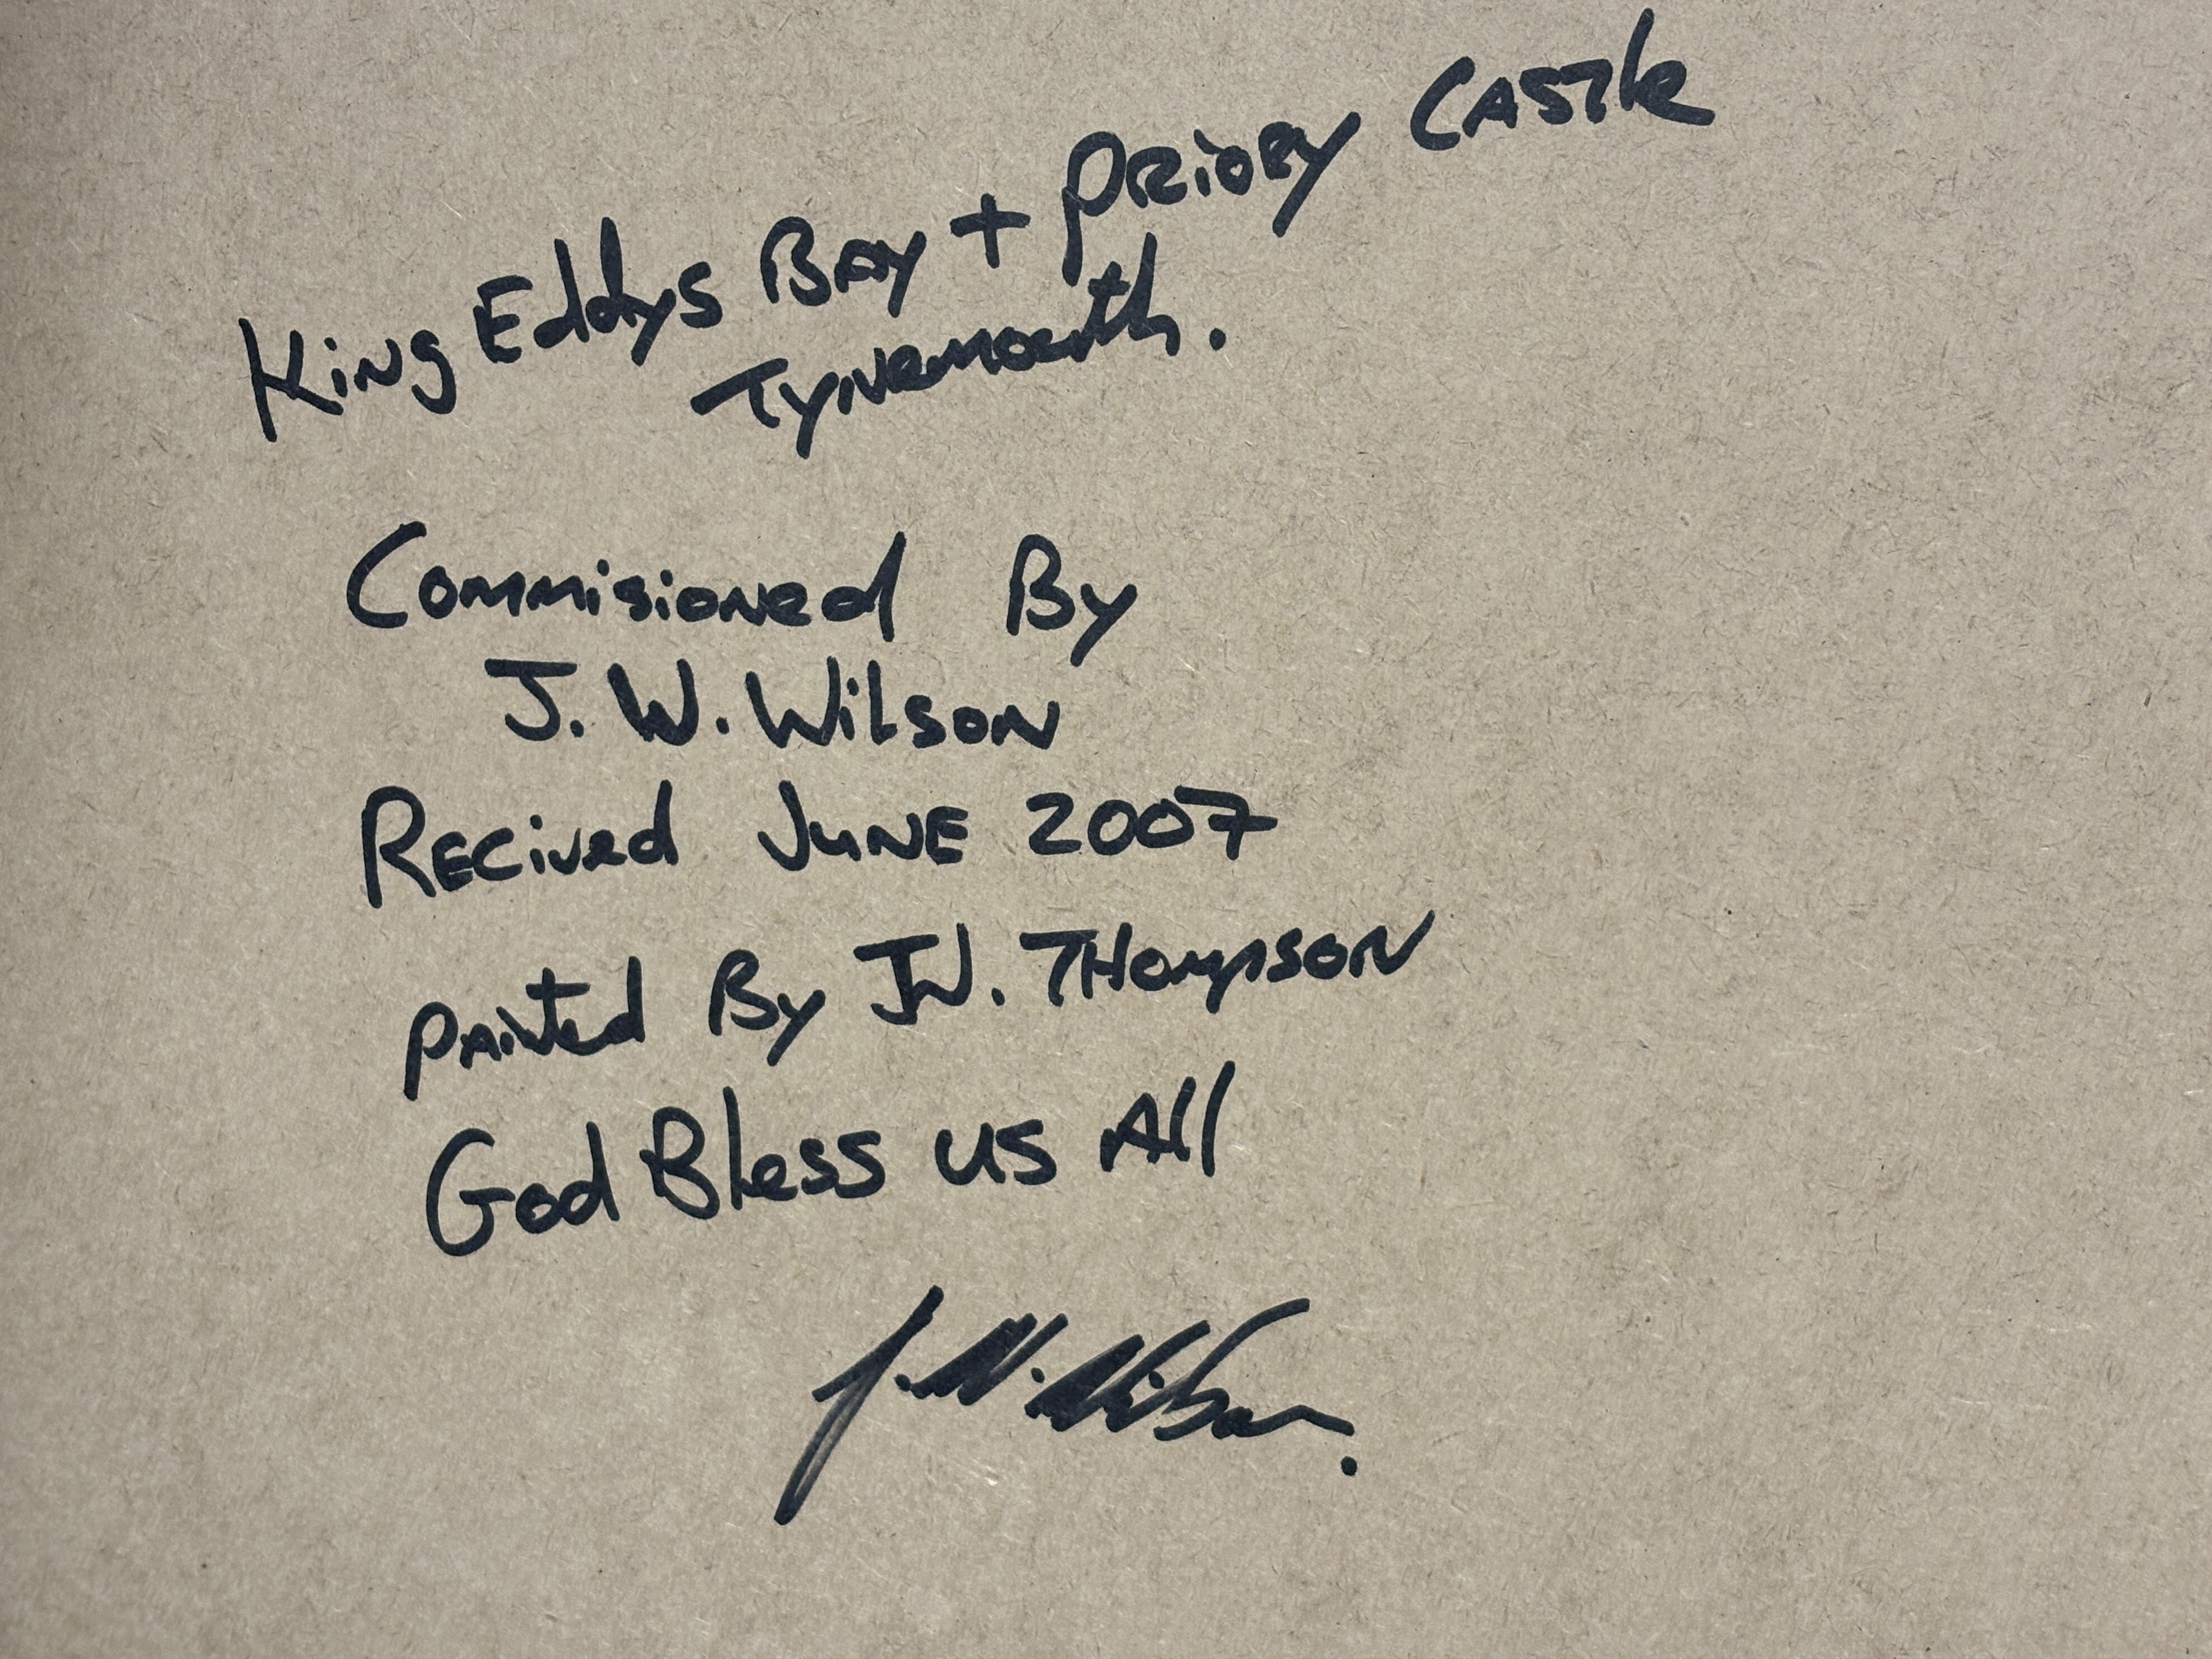 King Eddys Bay + Priory Castle
Tynemouth.
Commisioned By
J. W. Wilson
Recived June 2007
Painted By JW. Thompson
God Bless us All
J. W. Wilson.